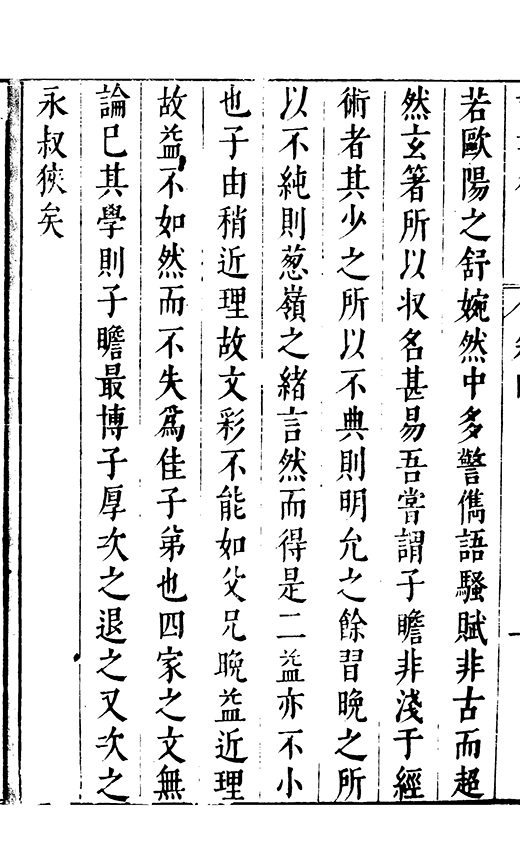 若歐陽之舒婉然中多警儁語騷賦非古而超
然玄箸所以収名甚易吾嘗謂子瞻非淺于經
術者其少之所以不典則明允之餘習晚之所
以不純則葱嶺之緒言然而得是二益亦不小
也子由稍近理故文彩不能如父兄晚益近理
故益不如然而不失爲佳子弟也四家之文無
論已其學則子瞻最博子厚次之退之又次之
永叔狹矣